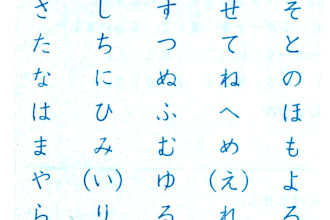 さ し す せ そ
た ち つ て と
な に ぬ ね の
は ひ ふ へ ほ
ま み む め も
や (い) ゆ (え) よ
ら り る れ ろ